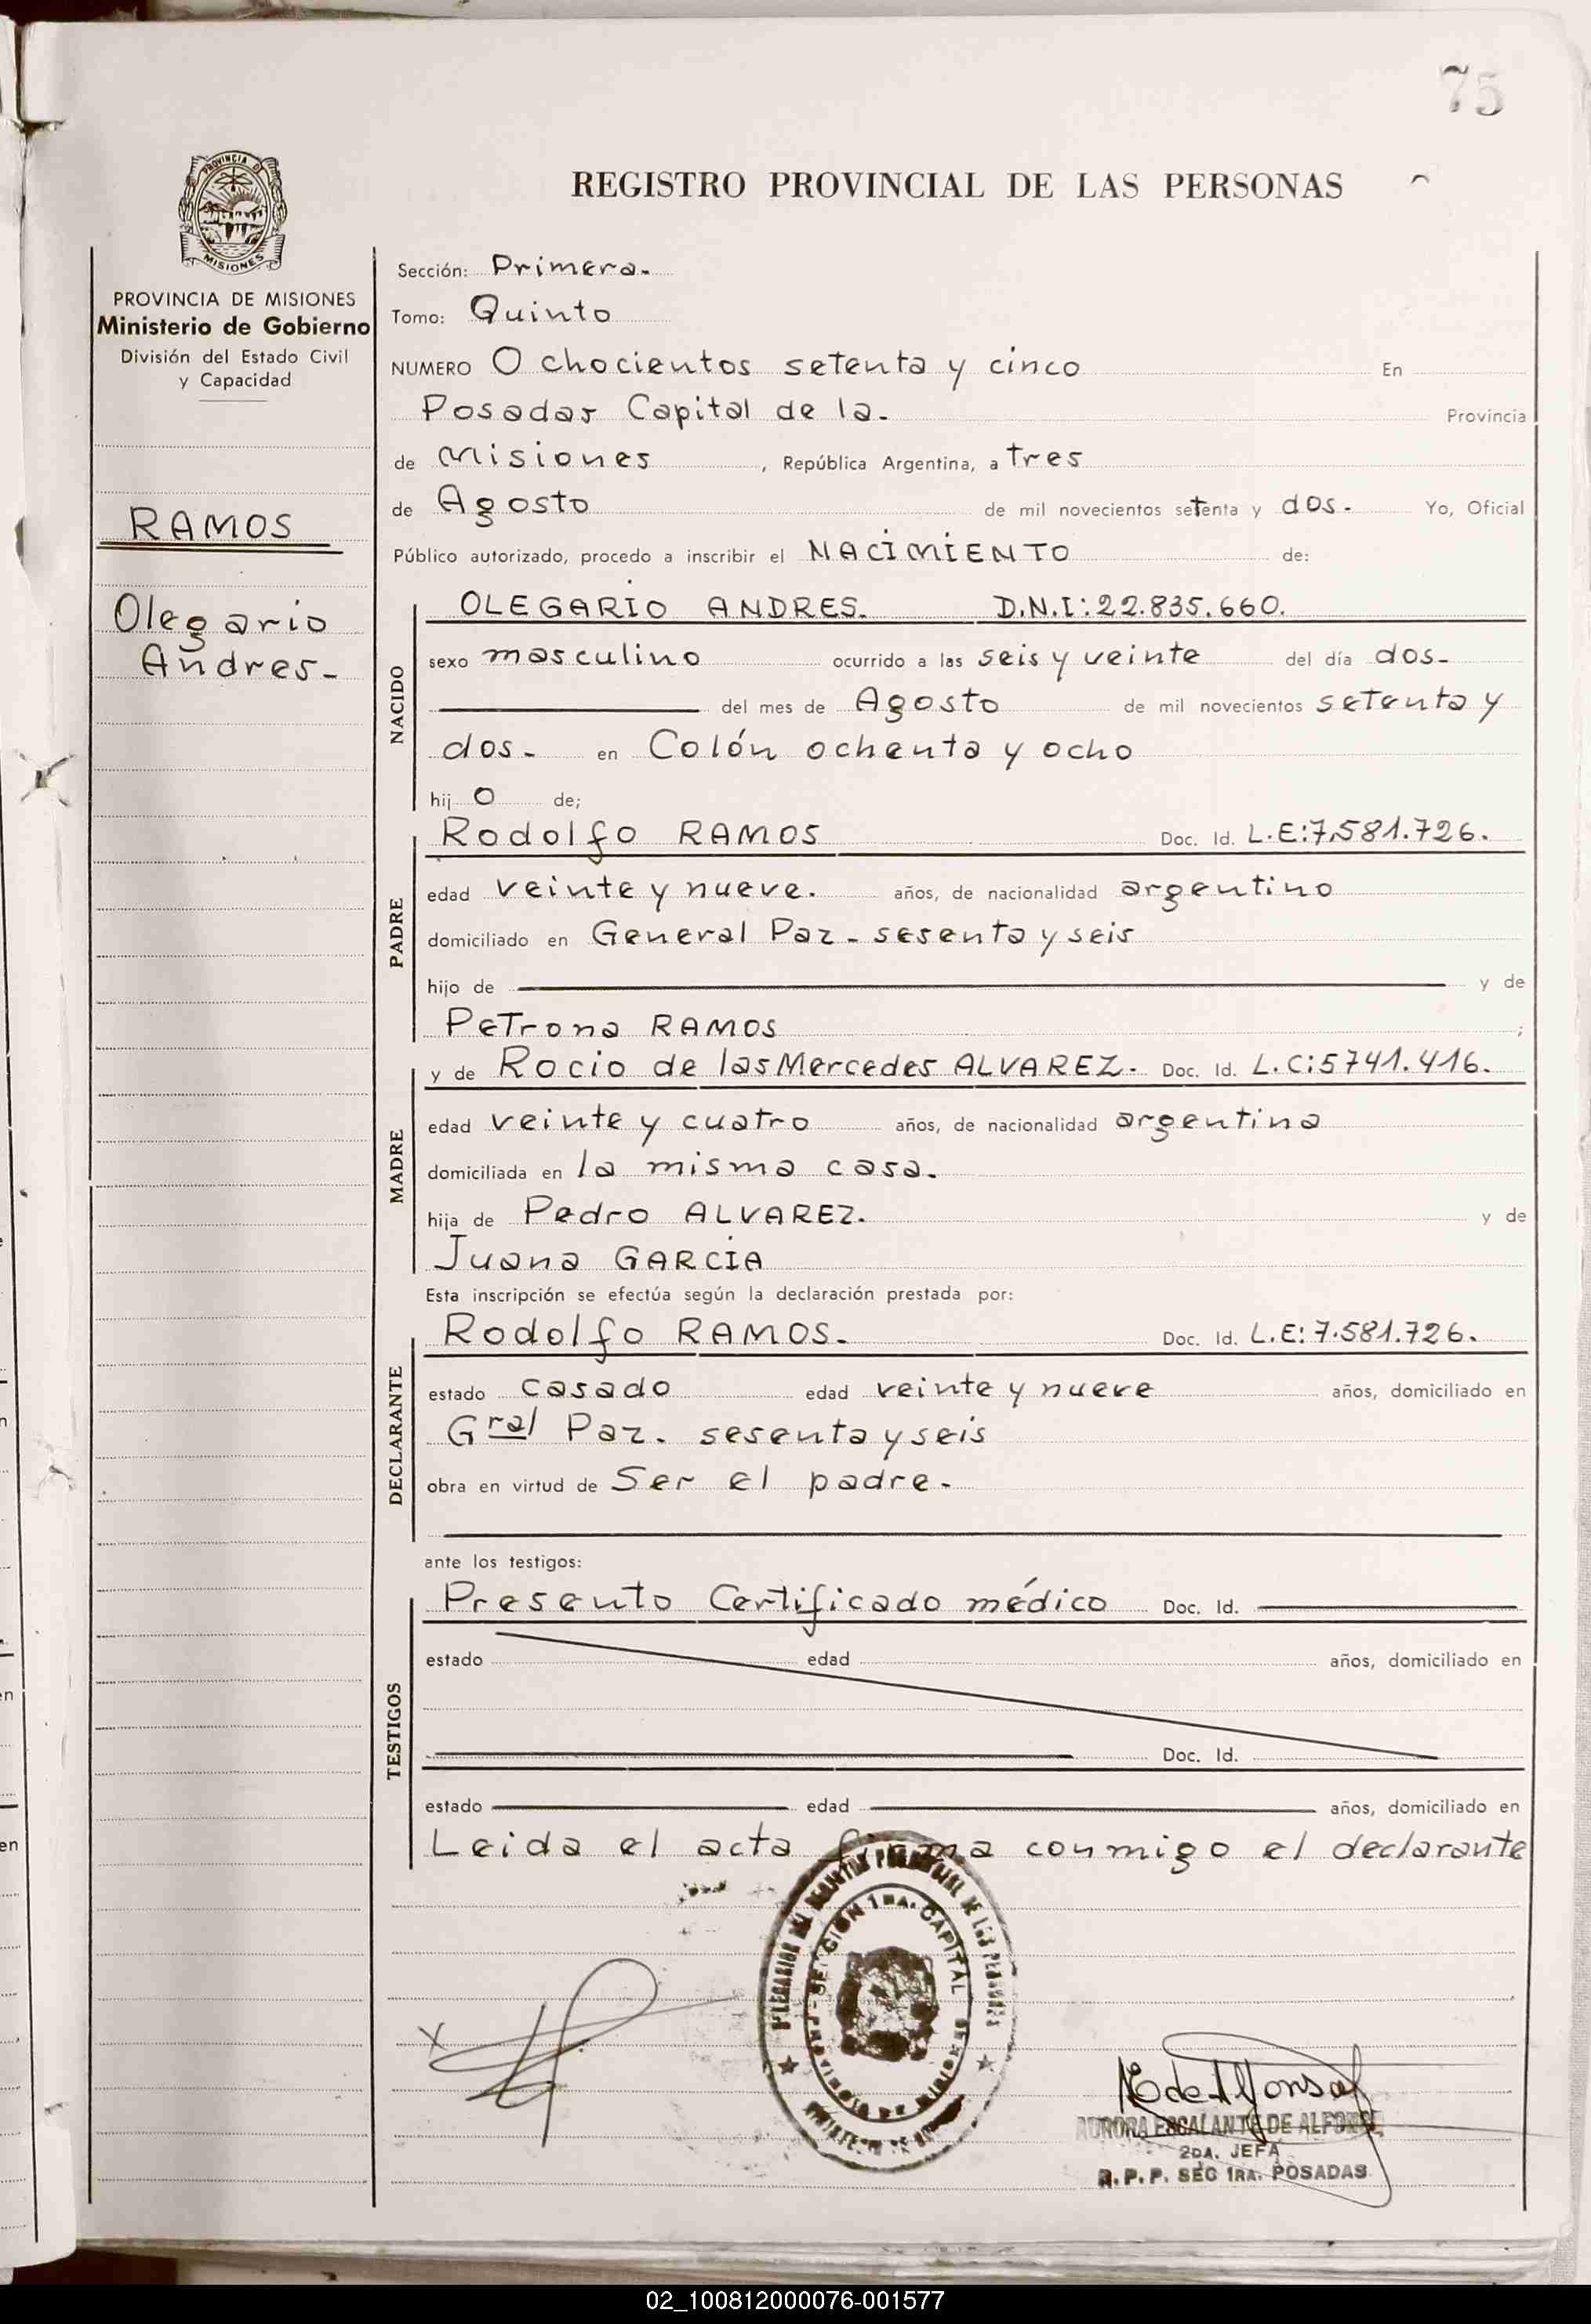 75
PROVINCIA DE
MISIONES
REGISTRO PROVINCIAL DE LAS PERSONAS
PROVINCIA DE MISIONES
Ministerio de Gobierno
División del Estado Civil
y Capacidad
RAMOS
Olegario
Andres-
Sección: Primera.
Tomo: Quinto
NUMERO Ochocientos setenta y cinco En
Posadas Capital de la. Provincia
de Misiones, República Argentina, a tres
de Agosto de mil novecientos setenta y dos. Yo, Oficial
Público autorizado, procedo a inscribir el NACIMIENTO de:
NACIDO
OLEGARIO ANDRES. D.N.I:22.835.660.
sexo masculino ocurrido a las seis y veinte del día dos-
del mes de Agosto de mil novecientos setenta y
dos- en Colón ochenta y ocho
hij o de;
PADRE
Rodolfo RAMOS Doc. Id. L.E:7.581.726.
edad veinte y nueve. años, de nacionalidad argentino
domiciliado en General Paz - sesenta y seis
hijo de y de
Petrona RAMOS ;
MADRE
y de Rocio de las Mercedes ALVAREZ. Doc. Id. L.C:5741.416.
edad veinte y cuatro años, de nacionalidad argentina
domiciliada en la misma casa.
hija de Pedro ALVAREZ. y de
Juana GARCIA
Esta inscripción se efectúa según la declaración prestada por:
DECLARANTE
Rodolfo RAMOS. Doc. Id. L.E:7.581.726.
estado casado edad veinte y nueve años, domiciliado en
Gral Paz. sesenta y seis
obra en virtud de Ser el padre.
ante los testigos:
TESTIGOS
Presento Certificado médico Doc. Id.
estado edad años, domiciliado en
Doc. Id.
estado edad años, domiciliado en
Leida el acta firma conmigo el declarante
SECCION 1RA. CAPITAL
X
AURORA ESCALANTE DE ALFONSO
2DA. JEFA
R.P.P. SEC 1RA. POSADAS
02_100812000076-001577